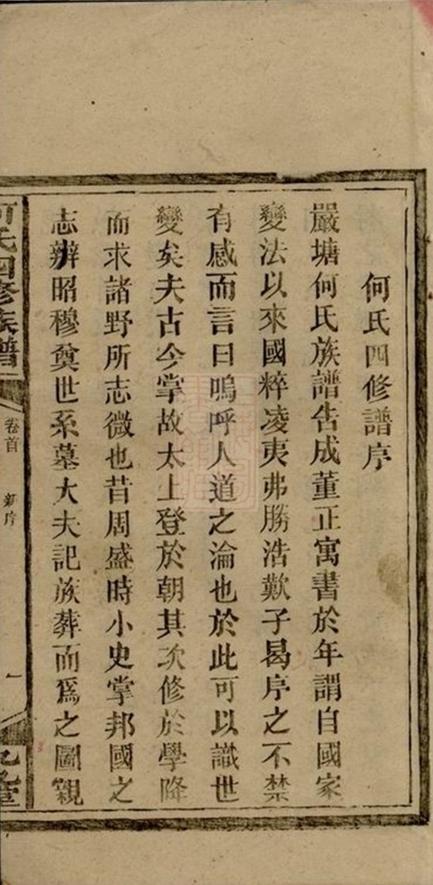 何氏四修譜序
嚴塘何氏族譜告成董正寓書於年謂自國家
變法以來國粹凌夷弗勝浩歎子曷序之不禁
有感而言曰嗚呼人道之淪也於此可以識世
變矣夫古今掌故太上登於朝其次修於學降
而求諸野所志微也昔周盛時小史掌邦國之
志辨昭穆奠世系墓大夫記族葬而爲之圖親
何氏四修族譜
卷首
新序
一